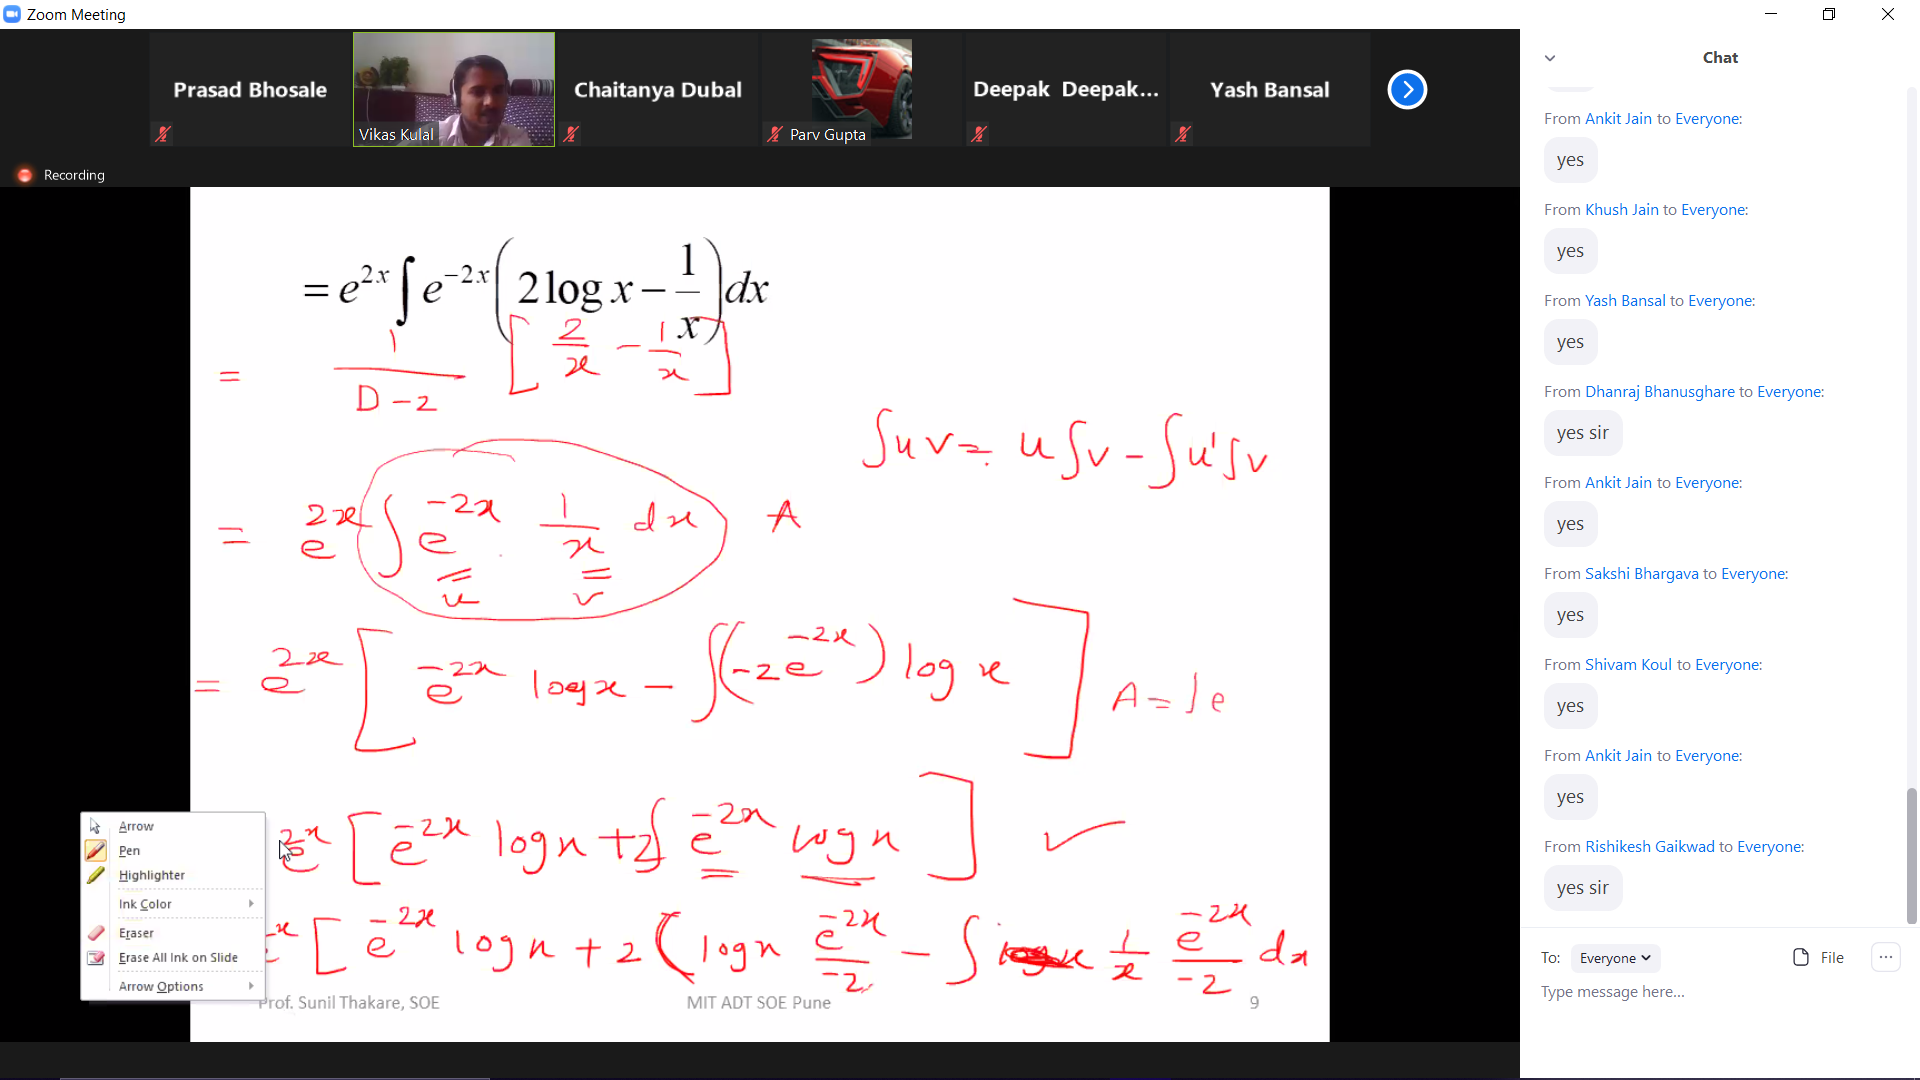 Zoom Meeting
Prasad Bhosale
Vikas Kulal
Chaitanya Dubal
Parv Gupta
Deepak Deepak...
Yash Bansal
Recording
= e^{2x} ∫ e^{-2x} ( 2 log x - 1/x ) dx
= 1/(D-2) [ 2/x - 1/x ]
∫uv = u∫v - ∫u'∫v
= e^{2x} ∫ e^{-2x} 1/x dx A
u v
= e^{2x} [ e^{-2x} log x - ∫(-2e^{-2x}) log x ] A = ∫e
e^{2x} [ e^{-2x} log x + 2∫ e^{-2x} log x ] ✓
[ e^{-2x} log x + 2 ( log x e^{-2x}/-2 - ∫ 1/x e^{-2x}/-2 dx
Arrow
Pen
Highlighter
Ink Color
Eraser
Erase All Ink on Slide
Arrow Options
Prof. Sunil Thakare, SOE
MIT ADT SOE Pune
9
Chat
From Ankit Jain to Everyone:
yes
From Khush Jain to Everyone:
yes
From Yash Bansal to Everyone:
yes
From Dhanraj Bhanusghare to Everyone:
yes sir
From Ankit Jain to Everyone:
yes
From Sakshi Bhargava to Everyone:
yes
From Shivam Koul to Everyone:
yes
From Ankit Jain to Everyone:
yes
From Rishikesh Gaikwad to Everyone:
yes sir
To: Everyone
File
...
Type message here...